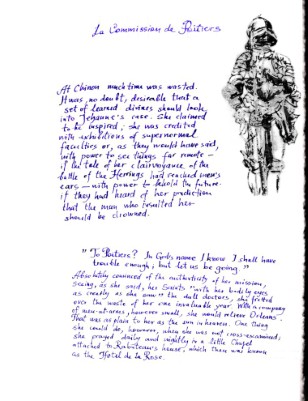 La Commission de Poitiers
At Chinon much time was wasted.
It was, no doubt, desirable that a
set of learned divines should look
into Jehanne's case. She claimed
to be inspired; she was credited
with exhibitions of supernormal
faculties or, as they would have said,
with power to see things far remote —
if the tale of her clairvoyance of the
battle of the Herrings had reached men's
ears — with power to behold the future
if they had heard of her prediction
that the man who insulted her
should be drowned.
"To Poitiers? In God's name I know I shall have
trouble enough; but let us be going."
Absolutely convinced of the authenticity of her mission,
seeing, as she said, her Saints "with her bodily eyes,
as clearly as she saw" the dull doctors, she fretted
over the waste of her one invaluable year. With a company
of men-at-arms, however small, she would relieve Orleans.
That was as plain to her as the sun in heaven. One thing
she could do, however, when she was not cross-examined;
she prayed daily and nightly in a little Chapel
attached to Rabateau's house, which then was known
as the Hotel de la Rose.